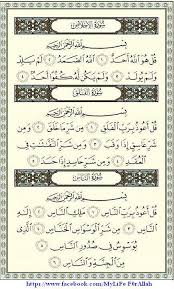 سُورَةُ الإِخْلَاصِ
بِسْمِ اللَّهِ الرَّحْمَٰنِ الرَّحِيمِ
قُلْ هُوَ اللَّهُ أَحَدٌ ١ اللَّهُ الصَّمَدُ ٢ لَمْ يَلِدْ
وَلَمْ يُولَدْ ٣ وَلَمْ يَكُن لَّهُ كُفُوًا أَحَدٌ ٤
سُورَةُ الْفَلَقِ
بِسْمِ اللَّهِ الرَّحْمَٰنِ الرَّحِيمِ
قُلْ أَعُوذُ بِرَبِّ الْفَلَقِ ١ مِن شَرِّ مَا خَلَقَ ٢
وَمِن شَرِّ غَاسِقٍ إِذَا وَقَبَ ٣ وَمِن شَرِّ النَّفَّٰثَٰتِ فِي
الْعُقَدِ ٤ وَمِن شَرِّ حَاسِدٍ إِذَا حَسَدَ ٥
سُورَةُ النَّاسِ
بِسْمِ اللَّهِ الرَّحْمَٰنِ الرَّحِيمِ
قُلْ أَعُوذُ بِرَبِّ النَّاسِ ١ مَلِكِ النَّاسِ ٢
إِلَٰهِ النَّاسِ ٣ مِن شَرِّ الْوَسْوَاسِ الْخَنَّاسِ ٤ الَّذِي
يُوَسْوِسُ فِي صُدُورِ النَّاسِ ٥
مِنَ الْجِنَّةِ وَالنَّاسِ ٦
https://www.facebook.com/MyLiFe F0rAllah